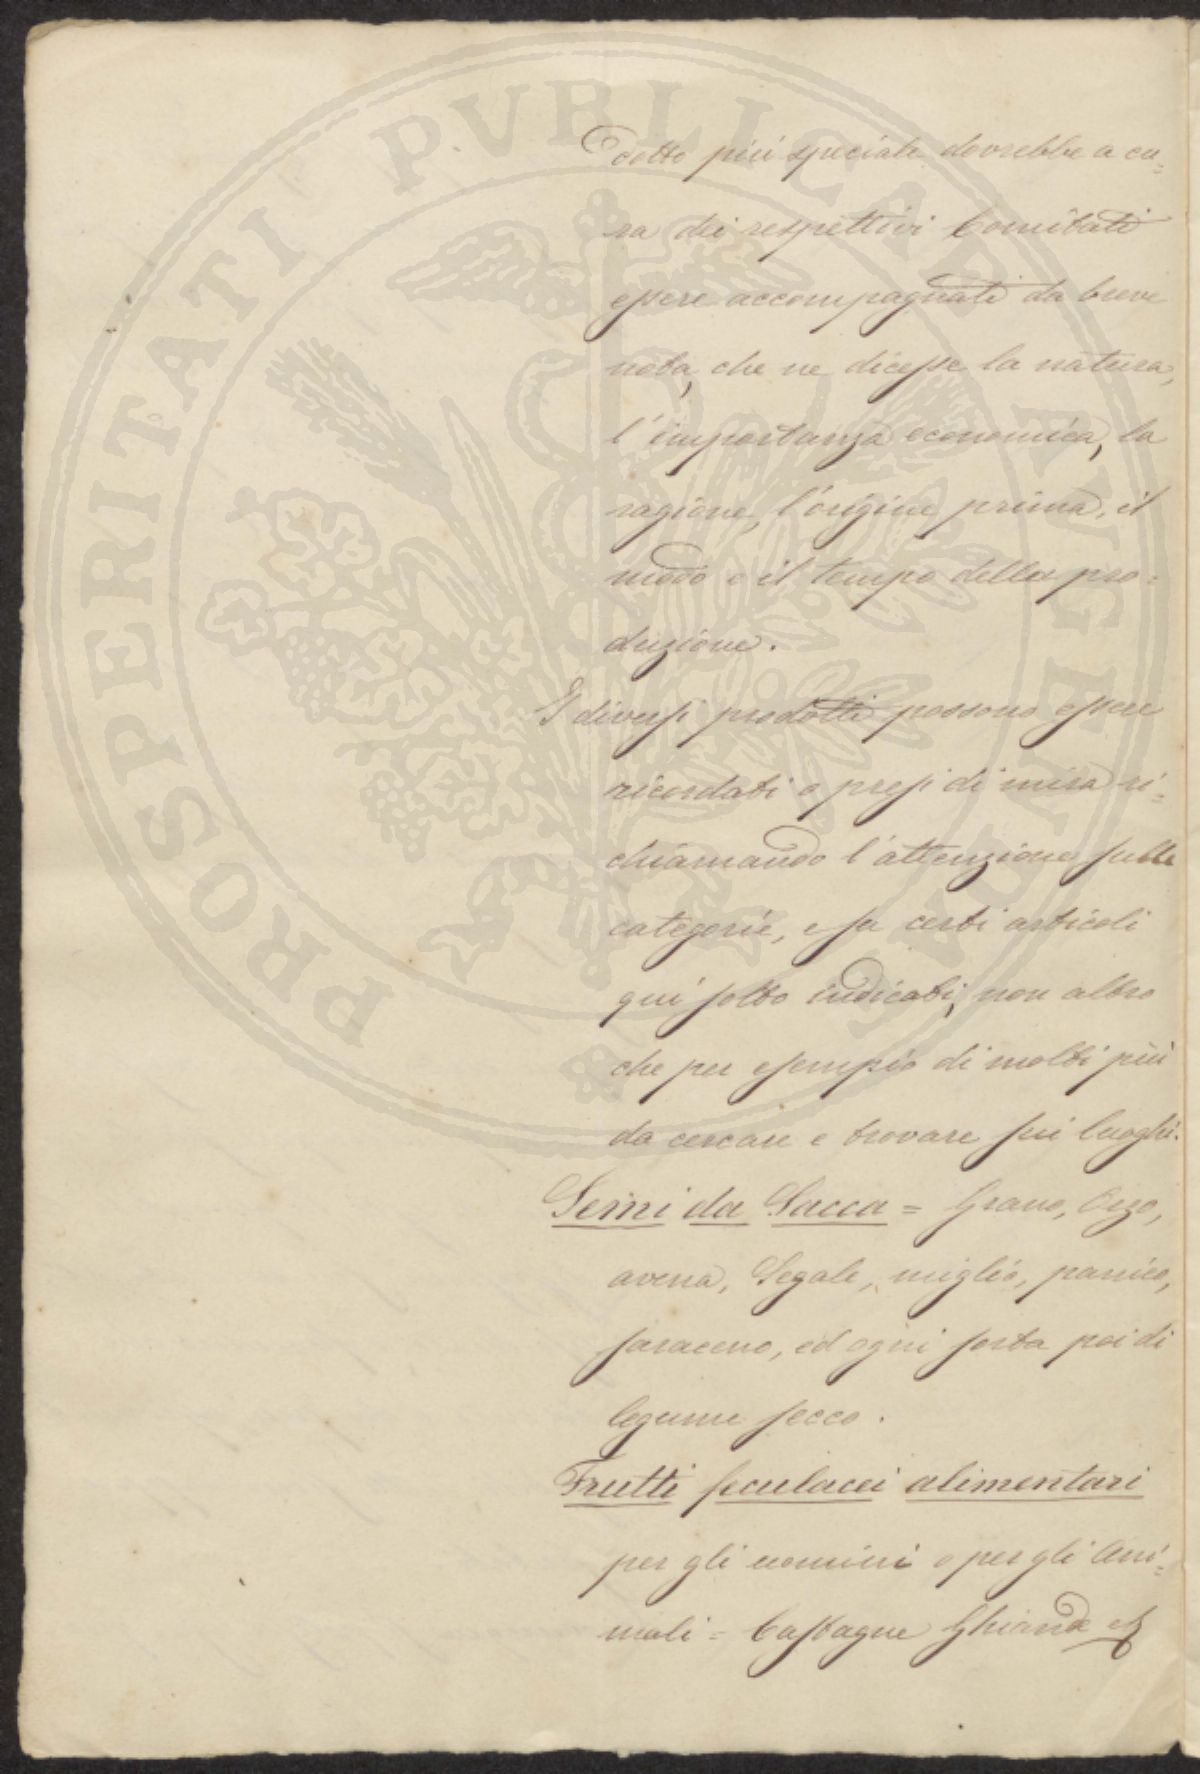 dotto più speciale dovrebbe a cu=
ra dei respettivi Comitati
essere accompagnati da breve
nota, che ne dicesse la natura,
l'importanza economica, la
ragione, l'origine prima, il
modo e il tempo della pro=
duzione.
I diversi prodotti possono essere
ricordati o presi di mira ri=
chiamando l'attenzione sulle
categorie, e su certi articoli
qui sotto indicati, non altro
che per esempio di molti più
da cercare e trovare sui luoghi.
Semi da Sacca = Grano, Orzo,
avena, Segale, miglio, panico,
saraceno, ed ogni sorta poi di
legume secco.
Frutti feculacei alimentari
per gli uomini o per gli Ani=
mali = Castagne Ghiande
PROSPERITATI PVBLICAE AVGENDAE